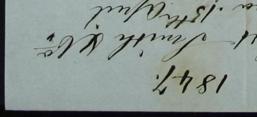 1847.
Smith & Co
13th April